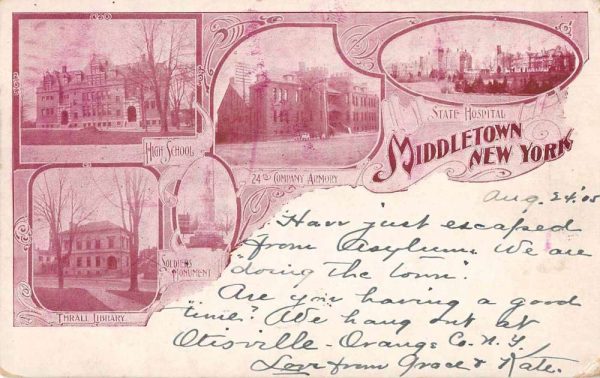 High School
24th Company Armory
State Hospital
Middletown
New York
Thrall Library
Soldiers
Monument
Aug. 24 '05
Have just escaped
from Asylum. We are
"doing the town".
Are you having a good
"time"? We hang out at
Otisville - Orange Co. N.Y.
Love from Grace & Kate.